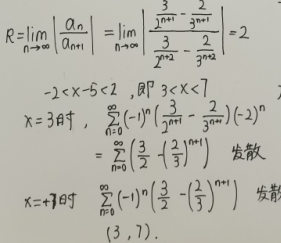 R = lim_{n→∞} |a_n / a_{n+1}| = lim_{n→∞} |(3/2^{n+1} - 2/3^{n+1}) / (3/2^{n+2} - 2/3^{n+2})| = 2
-2 < x-5 < 2 , 即 3 < x < 7
x = 3时 , ∑_{n=0}^{∞} (-1)^n (3/2^{n+1} - 2/3^{n+1}) (-2)^n
= ∑_{n=0}^{∞} (3/2 - (2/3)^{n+1}) 发散
x = 7时 ∑_{n=0}^{∞} (-1)^n (3/2 - (2/3)^{n+1}) 发散
(3, 7).